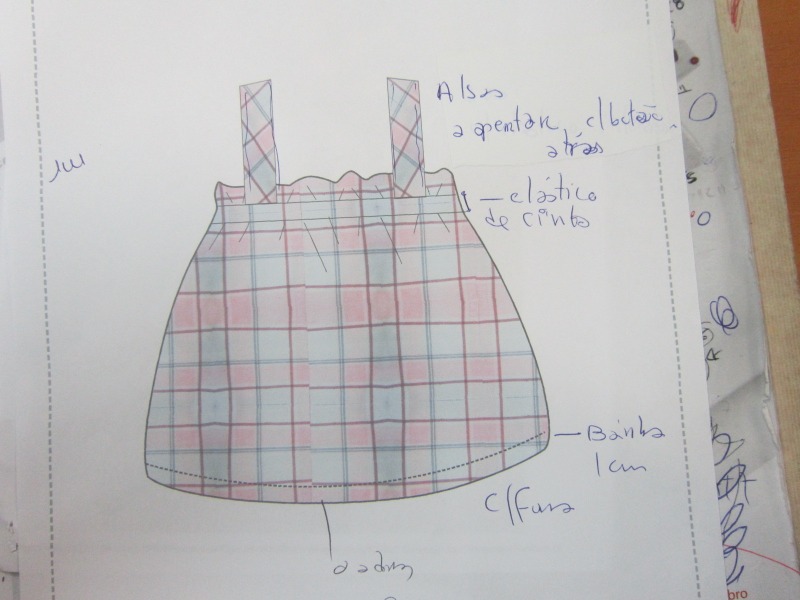 Alsas
a apertar c/botão
atrás
— elástico
de cinto
— Bainha
1 cm
bro